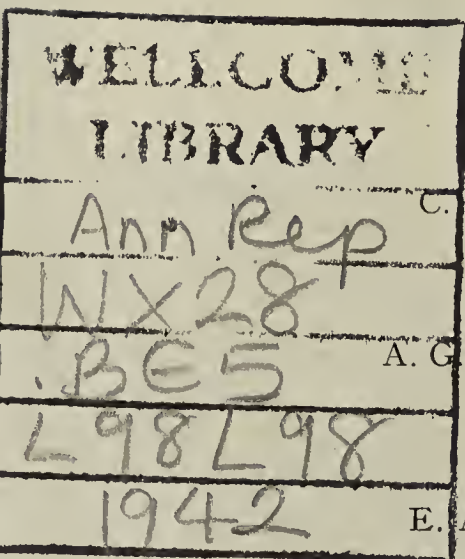 WELLCOME
LIBRARY
C.
Ann Rep
WX28
.BE5
A. G
L98L98
1942
E. A